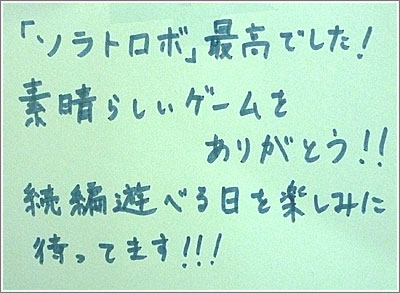 「ソラトロボ」最高でした!
素晴らしいゲームを
ありがとう!!
続編遊べる日を楽しみに
待ってます!!!